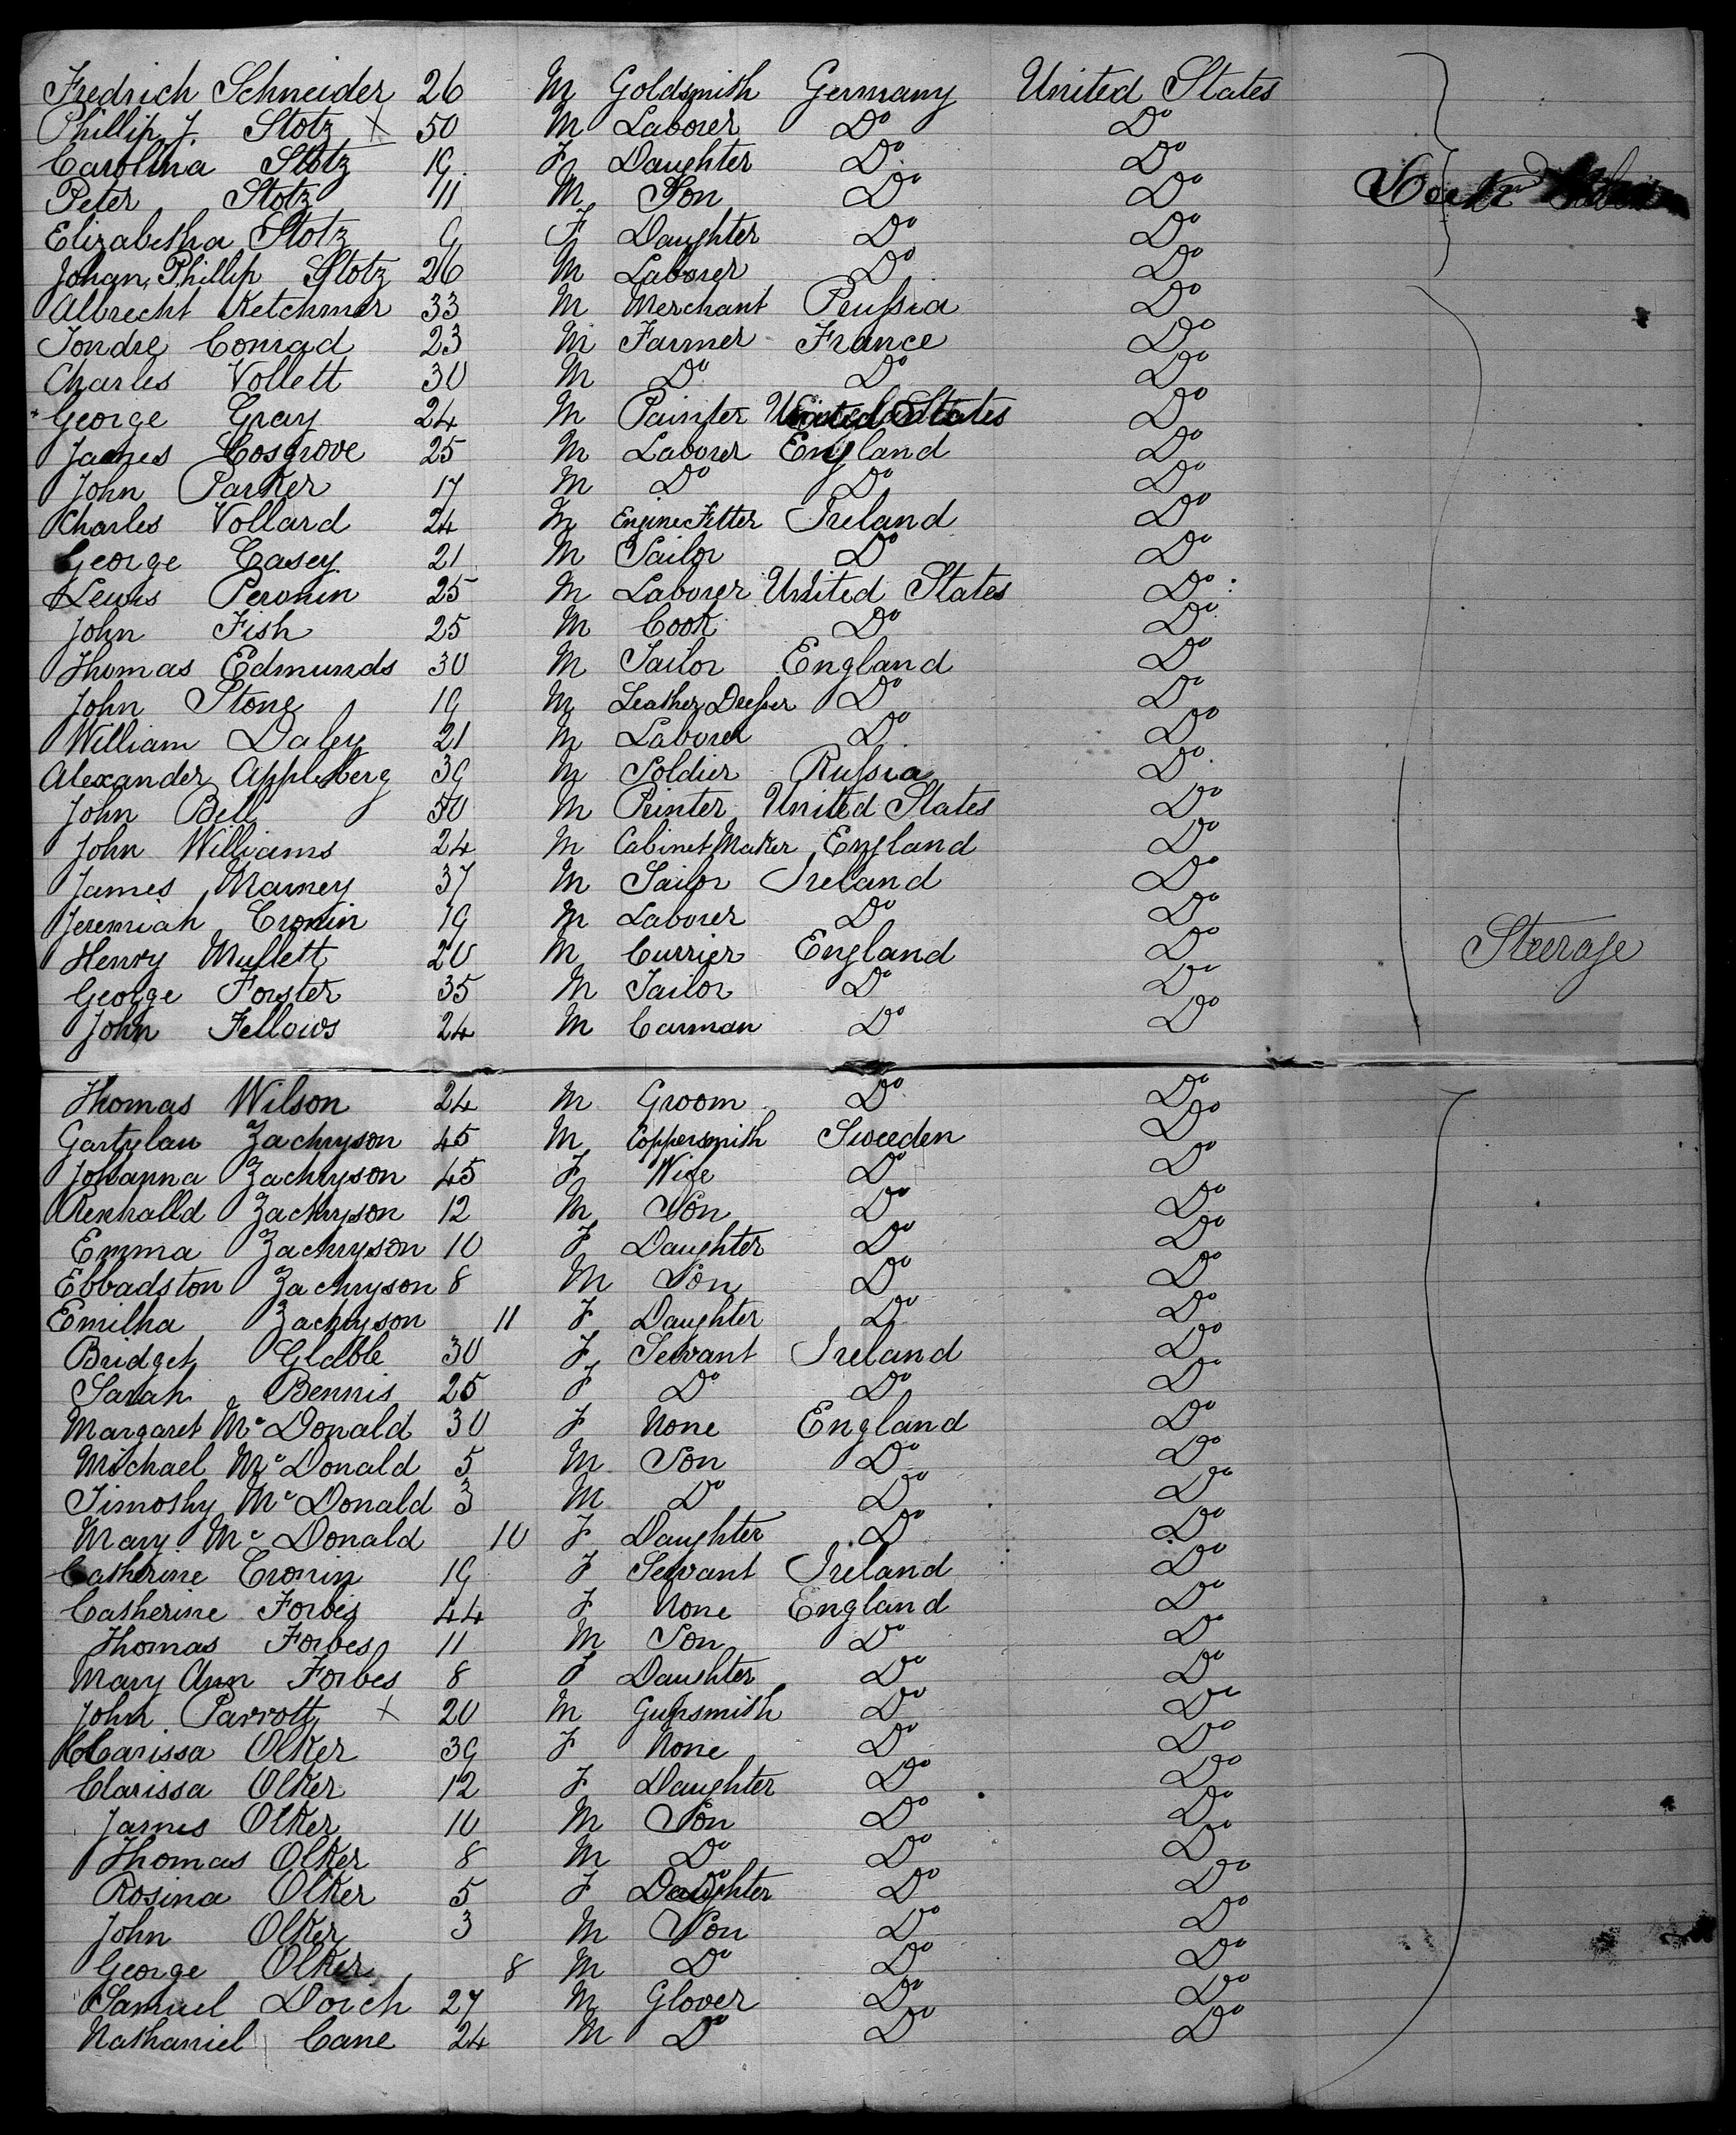 Fredrich Schneider 26 M Goldsmith Germany United States
Phillip J Stotz X 50 M Laborer Do Do
Carolina Stotz 19 F Daughter Do Do
Peter Stotz 11 M Son Do Do
Elizabetha Stotz 9 F Daughter Do Do
Johan Phillip Stotz 26 M Laborer Do Do
Albrecht Ketchmer 33 M Merchant Prussia Do
Tondre Conrad 23 M Farmer France Do
Charles Vollett 30 M Do Do Do
George Gray 24 M Painter Do
James Cosgrove 25 M Laborer England Do
John Parker 17 M Do Do Do
Charles Vollard 24 M Engine Fitter Ireland Do
George Casey 21 M Sailor Do Do
Lewis Peronin 25 M Laborer United States Do
John Fish 25 M Cook Do Do
Thomas Edmunds 30 M Tailor England Do
John Stone 19 M Leather Do Do
William Daley 21 M Laborer Do Do
Alexander Appleberg 39 M Soldier Russia Do
John Bell 50 M Printer United States Do
John Williams 24 M Cabinet Maker England Do
James Marney 37 M Sailor Ireland Do
Jeremiah Cronin 19 M Laborer Do Do
Henry Mullett 20 M Currier England Do
Steerage
George Forster 35 M Tailor Do Do
John Fellows 24 M Carman Do Do
Thomas Wilson 24 M Groom Do Do
Gartylau Zachryson 45 M Coppersmith Sweeden Do
Johanna Zachryson 45 F Wife Do Do
Renhalld Zachryson 12 M Son Do Do
Emma Zachryson 10 F Daughter Do Do
Ebbadston Zachryson 8 M Son Do Do
Emilha Zachryson 11 F Daughter Do Do
Bridget Glabble 30 F Servant Ireland Do
Sarah Bennis 25 F Do Do Do
Margaret Mc Donald 30 F None England Do
Michael Mc Donald 5 M Son Do Do
Timothy Mc Donald 3 M Do Do Do
Mary Mc Donald 10 F Daughter Do Do
Catherine Cronin 19 F Servant Ireland Do
Catherine Forbes 44 F None England Do
Thomas Forbes 11 M Son Do Do
Mary Ann Forbes 8 F Daughter Do Do
John Parrott X 20 M Gunsmith Do Do
Clarissa Olker 39 F None Do Do
Clarissa Olker 12 F Daughter Do Do
James Olker 10 M Son Do Do
Thomas Olker 8 M Do Do Do
Rosina Olker 5 F Daughter Do Do
John Olker 3 M Son Do Do
George Olker 8 M Do Do Do
Samuel Dorch 27 M Glover Do Do
Nathaniel Cane 24 M Do Do Do